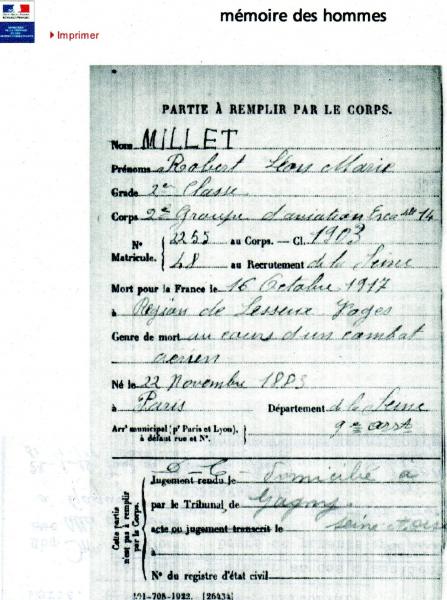 mémoire des hommes
Imprimer
PARTIE À REMPLIR PAR LE CORPS.
Nom MILLET
Prénoms Robert Léon Marie
Grade 2e Classe
Corps 2e Groupe d'aviation Escadlle 14
N° Matricule. 2255 au Corps. — Cl. 1903
48 au Recrutement de la Seine
Mort pour la France le 16 Octobre 1917
à Région de Lesseux Vosges
Genre de mort au cours d'un combat
aérien
Né le 22 Novembre 1883
à Paris Département de la Seine
Arrt municipal (pr Paris et Lyon), à défaut rue et N°. 9e arrt
Cette partie n'est pas à remplir par le Corps.
Jugement rendu le domicilié à
par le Tribunal de Gagny
acte ou jugement transcrit le Seine et
N° du registre d'état civil
101-708-1922. [26434]